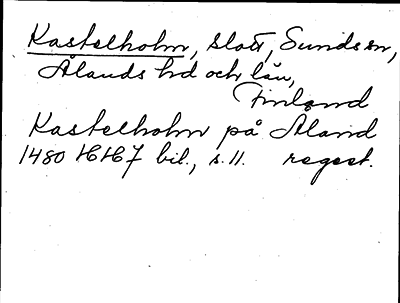 Kastelholm, slott, Sunds sn,
Ålands hd och län,
Finland
Kastelholm på Åland
1480 16/16 7 bil., s. 11. regest.